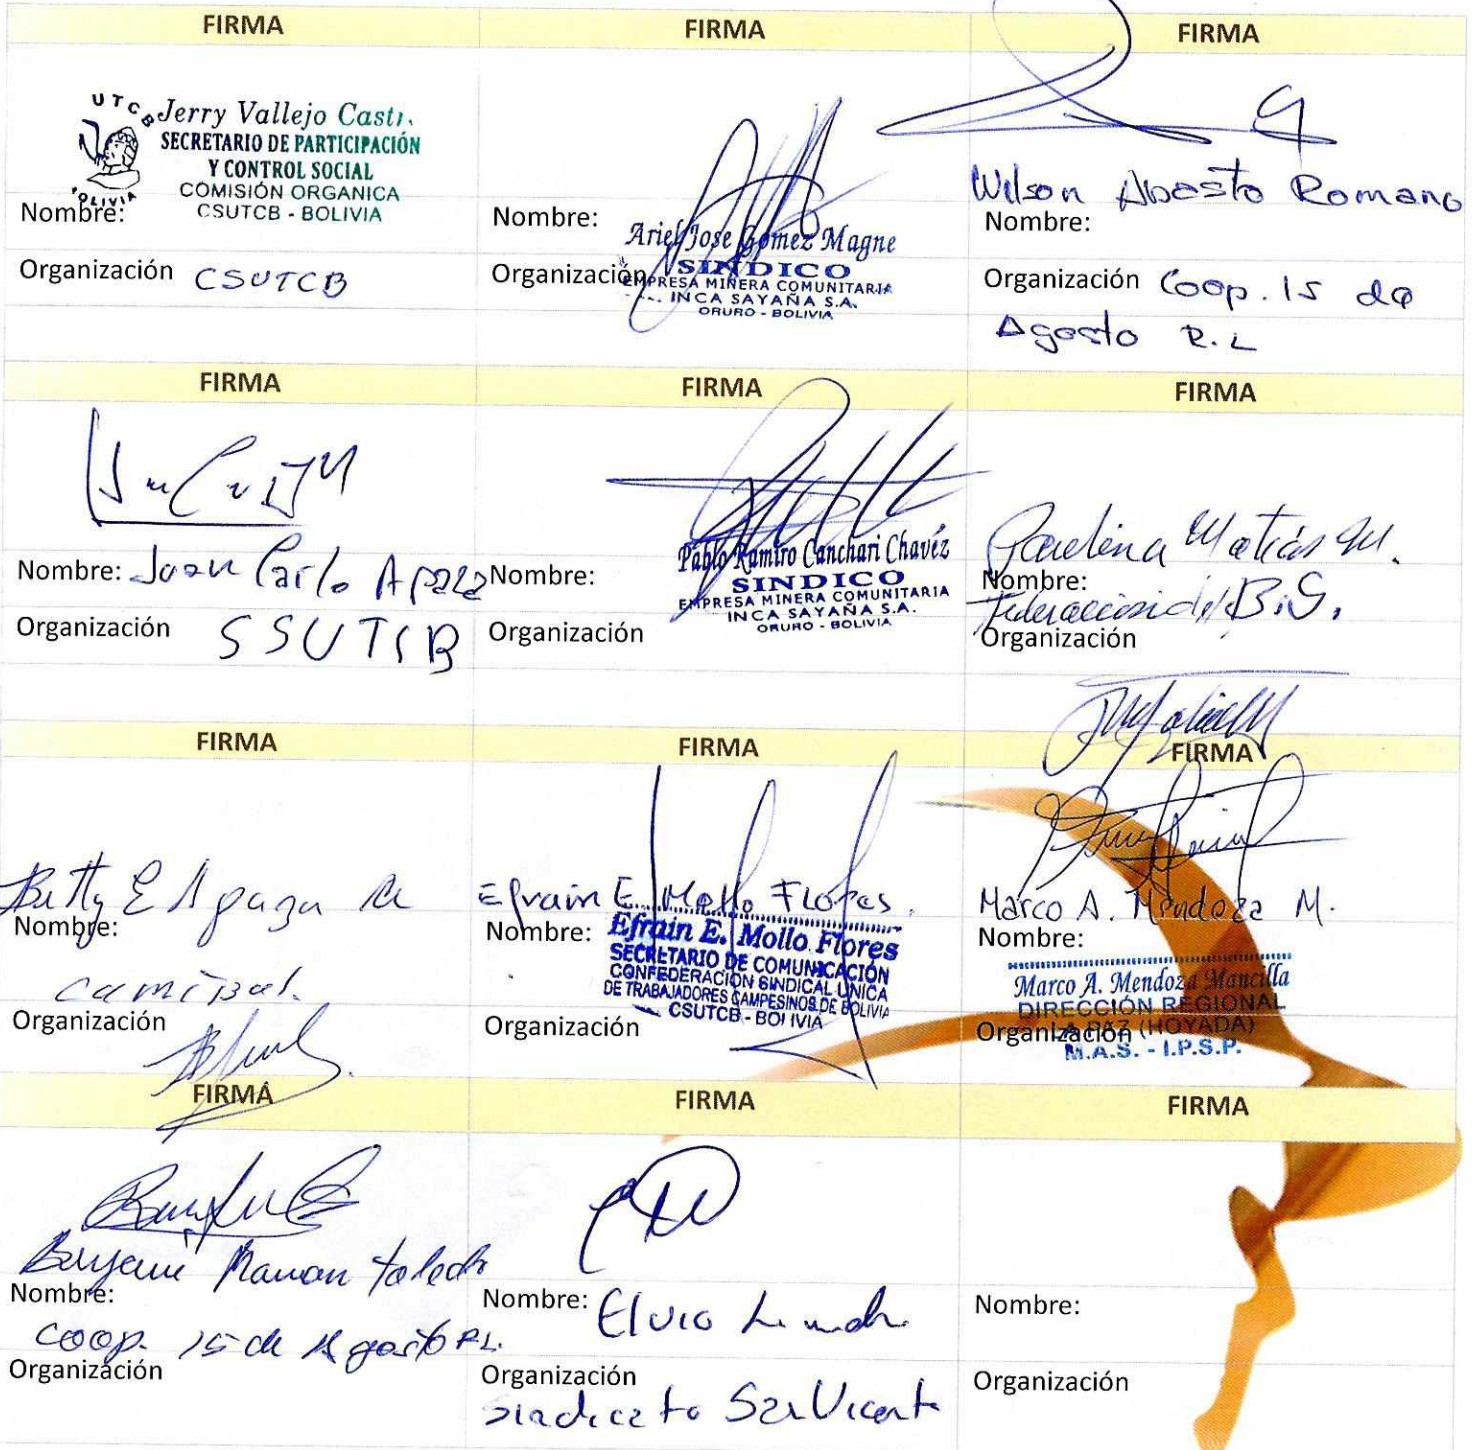 FIRMA FIRMA FIRMA
UTCB
Jerry Vallejo Castr.
SECRETARIO DE PARTICIPACIÓN
Y CONTROL SOCIAL
COMISIÓN ORGANICA
CSUTCB - BOLIVIA
BOLIVIA
Nombre:
Organización CSUTCB
Nombre:
Ariel Jose Gomez Magne
SINDICO
Organización
EMPRESA MINERA COMUNITARIA
INCA SAYAÑA S.A.
ORURO - BOLIVIA
Wilson Abasto Romano
Nombre:
Organización Coop. 15 de
Agosto R.L
FIRMA FIRMA FIRMA
Nombre: Juan Carlo Apaza
Organización SSUTCB
Pablo Ramiro Canchari Chavéz
Nombre:
SINDICO
EMPRESA MINERA COMUNITARIA
INCA SAYAÑA S.A.
Organización
ORURO - BOLIVIA
Paulina Matias M.
Nombre:
Federacion de B.S.
Organización
FIRMA FIRMA FIRMA
Betty E Apaza
Nombre:
Organización
Efrain E. Mollo Flores.
Nombre:
Efrain E. Mollo Flores
SECRETARIO DE COMUNICACIÓN
CONFEDERACIÓN SINDICAL UNICA
DE TRABAJADORES CAMPESINOS DE BOLIVIA
CSUTCB - BOLIVIA
Organización
Marco A. Mendoza M.
Nombre:
Marco A. Mendoza Mancilla
DIRECCIÓN REGIONAL
LA PAZ (HOYADA)
Organización
M.A.S. - I.P.S.P.
FIRMA FIRMA FIRMA
Mamani Toledo
Nombre:
Coop. 15 de Agosto RL.
Organización
Nombre: Elvio
Organización
Sindicato San Vicente
Nombre:
Organización